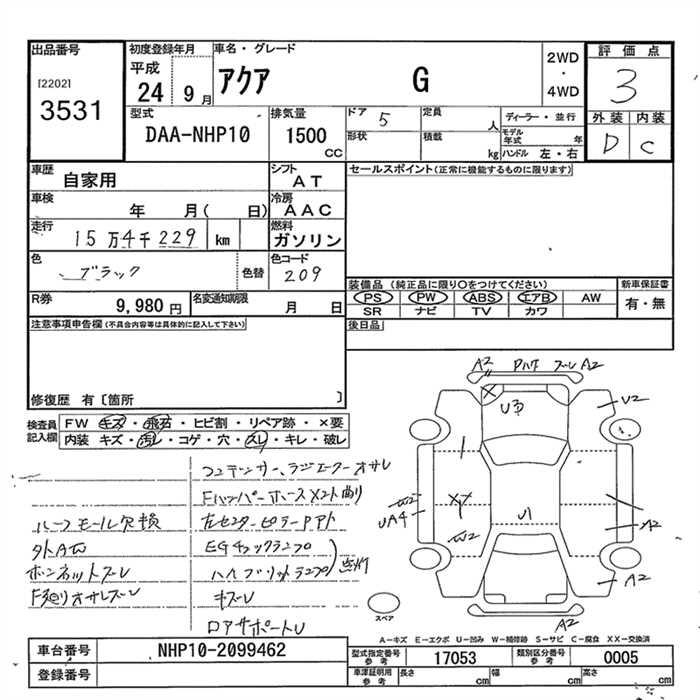 出品番号
[2202]
3531
初度登録年月
平成
24 9月
車名・グレード
アクア G
2WD
・
4WD
評価点
3
外装 内装
D C
型式
DAA-NHP10
排気量
1500
CC
ドア 5
定員
人
形状
積載
kg
ディーラー・並行
モデル年式 年
ハンドル 左・右
車歴
自家用
シフト
AT
セールスポイント(正常に機能するものに限ります)
車検
年 月( 日)
冷房
AAC
走行
15万4千229 km
燃料
ガソリン
色
ブラック
色替
色コード
209
装備品(純正品に限り○をつけてください)
PS PW ABS エアB AW
SR ナビ TV カワ
新車保証書
有・無
R券
9,980円
名変通知期限
月 日
後日品
注意事項申告欄(不具合内容等は具体的に記入して下さい)
修復歴 有〔箇所 〕
検査員記入欄
FW キズ・飛石・ヒビ割・リペア跡・×要
内装 キズ・汚レ・コゲ・穴・スレ・キレ・破レ
コンデンサー、ラジエーターオサレ
Fバンパーホースメント曲り
ルーフモール欠損
左センターピラーアト
外AW
EGチェックランプ
ボンネットズレ
ハイブリットランプ 点灯
F廻りオサレズレ
キズレ
ロアサポートU
A2 ズレ A2
U3
U2
W2
UA4
XX
W2
U1
A2
A2
A2
スペア
A−キズ E−エクボ U−凹み W−補修跡 S−サビ C−腐食 XX−交換済
車台番号
NHP10-2099462
登録番号
型式指定番号
参考
17053
類別区分番号
参考
0005
車庫証明用
参考
長さ cm
幅 cm
高さ cm